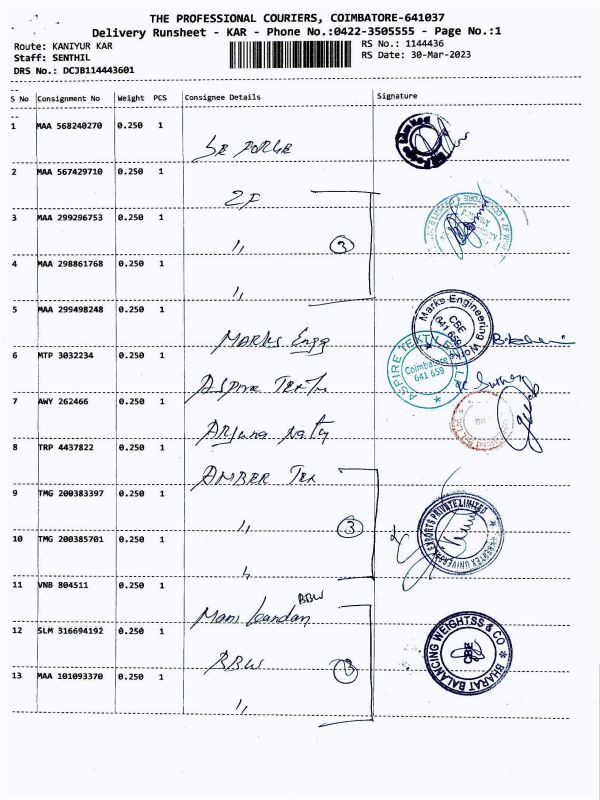 THE PROFESSIONAL COURIERS, COIMBATORE-641037
Delivery Runsheet - KAR - Phone No.:0422-3505555 - Page No.:1
Route: KANIYUR KAR
RS No.: 1144436
Staff: SENTHIL
RS Date: 30-Mar-2023
DRS No.: DCJB114443601
S No Consignment No Weight PCS Consignee Details Signature
1 MAA 568240270 0.250 1
SR FORGE
2 MAA 567429710 0.250 1
ZF
3 MAA 299296753 0.250 1
,, 3
4 MAA 298861768 0.250 1
,,
5 MAA 299498248 0.250 1
MARKS Engg
Marks Engineering Works
CBE
641 659
6 MTP 3032234 0.250 1
Aspire Tex
ASPIRE
Coimbatore
641 659
7 AWY 262466 0.250 1
Arjuna
8 TRP 4437822 0.250 1
AMBER Tex
9 TMG 200383397 0.250 1
,, 3
EXPORTS PRIVATE LIMITED
10 TMG 200385701 0.250 1
,,
11 VNB 804511 0.250 1
Mani kandan BBW
12 SLM 316694192 0.250 1
BBW 3
BHARAT BALANCING WEIGHTSS & CO
CBE
13 MAA 101093370 0.250 1
,,